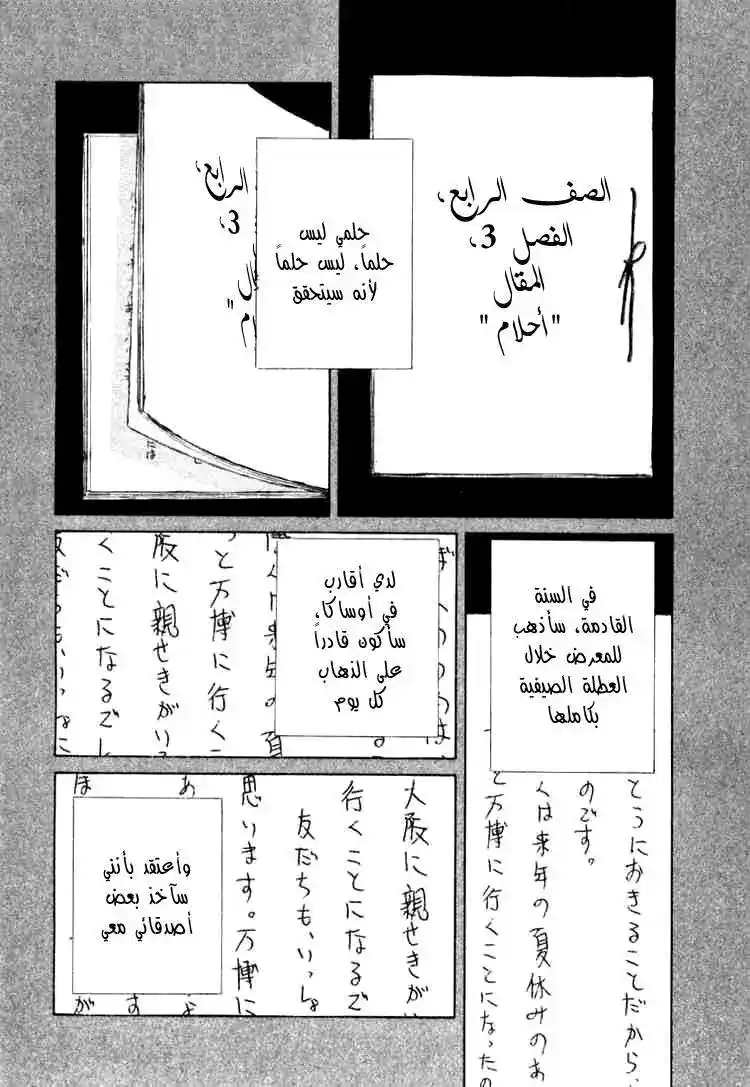 الصف الرابع،
الفصل 3،
المقال
"أحلام"
الرابع،
3،
حلمي ليس
حلماً، ليس حلماً
لأنه سيتحقق
في السنة
القادمة، سأذهب
للمعرض خلال
العطلة الصيفية
بكاملها
とうにおきることだから、
のです。
くは来年の夏休みのあ
と万博に行くことになったの
لدي أقارب
في أوساكا،
سأكون قادراً
على الذهاب
كل يوم
っと万博に行くこ
阪に親せきがい
くことになるでし
大阪に親せきがい
行くことになるで
友だちも、いっしょ
思います。万博に
وأعتقد بأنني
سآخذ بعض
أصدقائي معي